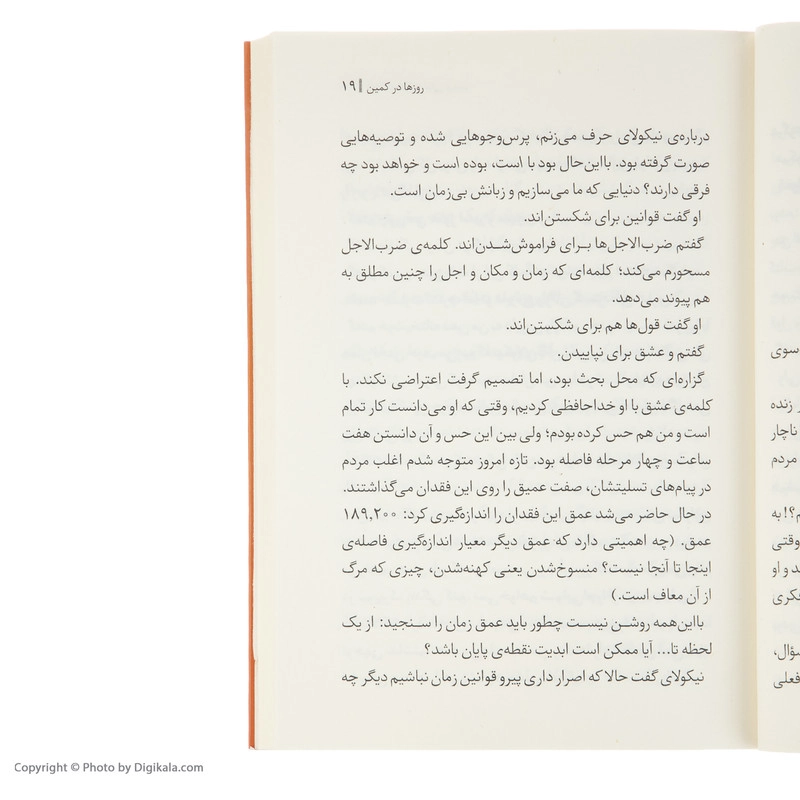 روزها در کمین ‖ ۱۹
درباره‌ی نیکولای حرف می‌زنم، پرس‌وجوهایی شده و توصیه‌هایی
صورت گرفته بود. بااین‌حال بود با است، بوده است و خواهد بود چه
فرقی دارند؟ دنیایی که ما می‌سازیم و زبانش بی‌زمان است.
او گفت قوانین برای شکستن‌اند.
گفتم ضرب‌الاجل‌ها برای فراموش‌شدن‌اند. کلمه‌ی ضرب‌الاجل
مسحورم می‌کند؛ کلمه‌ای که زمان و مکان و اجل را چنین مطلق به
هم پیوند می‌دهد.
او گفت قول‌ها هم برای شکستن‌اند.
گفتم و عشق برای نپاییدن.
گزاره‌ای که محل بحث بود، اما تصمیم گرفت اعتراضی نکند. با
کلمه‌ی عشق با او خداحافظی کردیم، وقتی که او می‌دانست کار تمام
است و من هم حس کرده بودم؛ ولی بین این حس و آن دانستن هفت
ساعت و چهار مرحله فاصله بود. تازه امروز متوجه شدم اغلب مردم
در پیام‌های تسلیتشان، صفت عمیق را روی این فقدان می‌گذاشتند.
در حال حاضر می‌شد عمق این فقدان را اندازه‌گیری کرد: ۱۸۹,۲۰۰
عمق. (چه اهمیتی دارد که عمق دیگر معیار اندازه‌گیری فاصله‌ی
اینجا تا آنجا نیست؟ منسوخ‌شدن یعنی کهنه‌شدن، چیزی که مرگ
از آن معاف است.)
بااین‌همه روشن نیست چطور باید عمق زمان را سنجید: از یک
لحظه تا... آیا ممکن است ابدیت نقطه‌ی پایان باشد؟
نیکولای گفت حالا که اصرار داری پیرو قوانین زمان نباشیم دیگر چه
سوی
زنده
ناچار
مردم
م؟! به
وقتی
د و او
فکری
سؤال،
فعلی
Copyright © Photo by Digikala.com